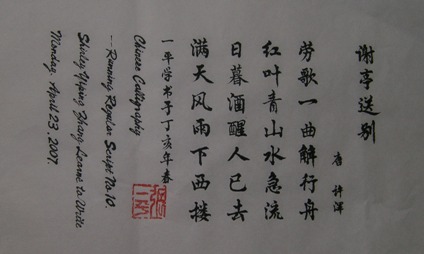 谢亭送别
唐 许浑
劳歌一曲解行舟
红叶青山水急流
日暮酒醒人已去
满天风雨下西楼
一平学书于丁亥年春
Chinese Calligraphy
--Running Regular Script No.10.
Shirley Yiping Zhang Learns to Write
Monday, April 23, 2007.